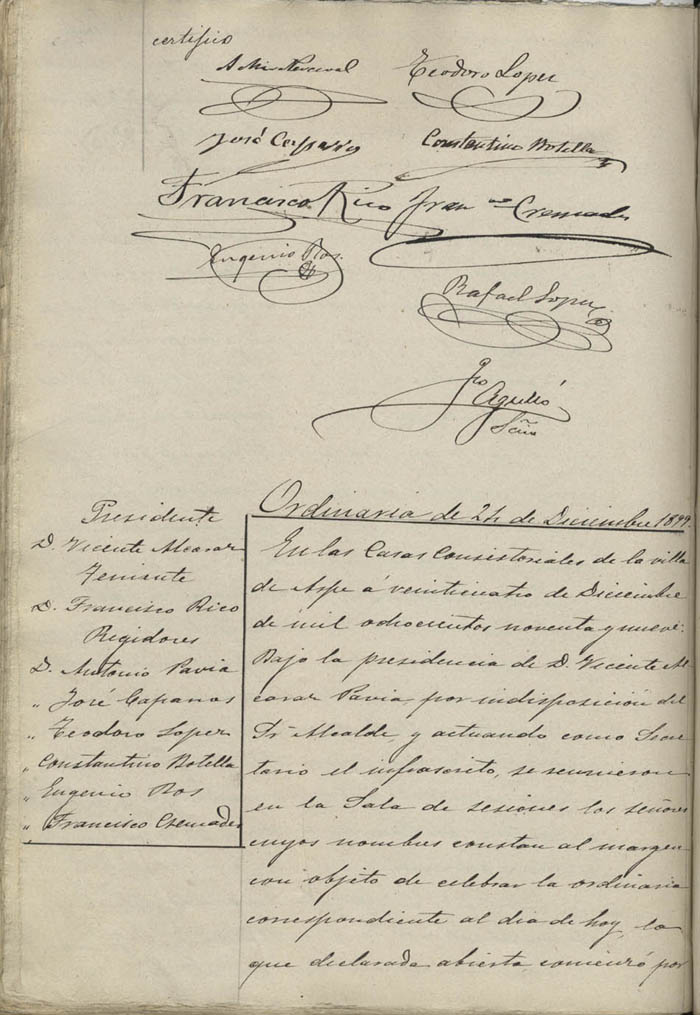 certifico
Teodoro Lopez
José Constantino Botella
Francisco Rico Fran.co Cremades
Eugenio Ros
Rafael Soper
Fco Agulló
Srio
Ordinaria de 24 de Diciembre 1899.
Presidente
D. Vicente Alcaraz
Teniente
D. Francisco Rico
Regidores
D. Antonio Pavia
„ José Caparros
„ Teodoro Loper
„ Constantino Botella
„ Eugenio Ros
„ Francisco Cremades
En las Casas Consistoriales de la villa
de Aspe á veinticuatro de Diciembre
de mil ochocientos noventa y nueve:
Bajo la presidencia de D. Vicente Al-
caraz Pavia por indisposición del
Sr Alcalde, y actuando como Secre
tario el infrascrito, se reunieron
en la Sala de sesiones los señores
cuyos nombres constan al margen
con objeto de celebrar la ordinaria
correspondiente al dia de hoy, la
que declarada abierta comenzó por